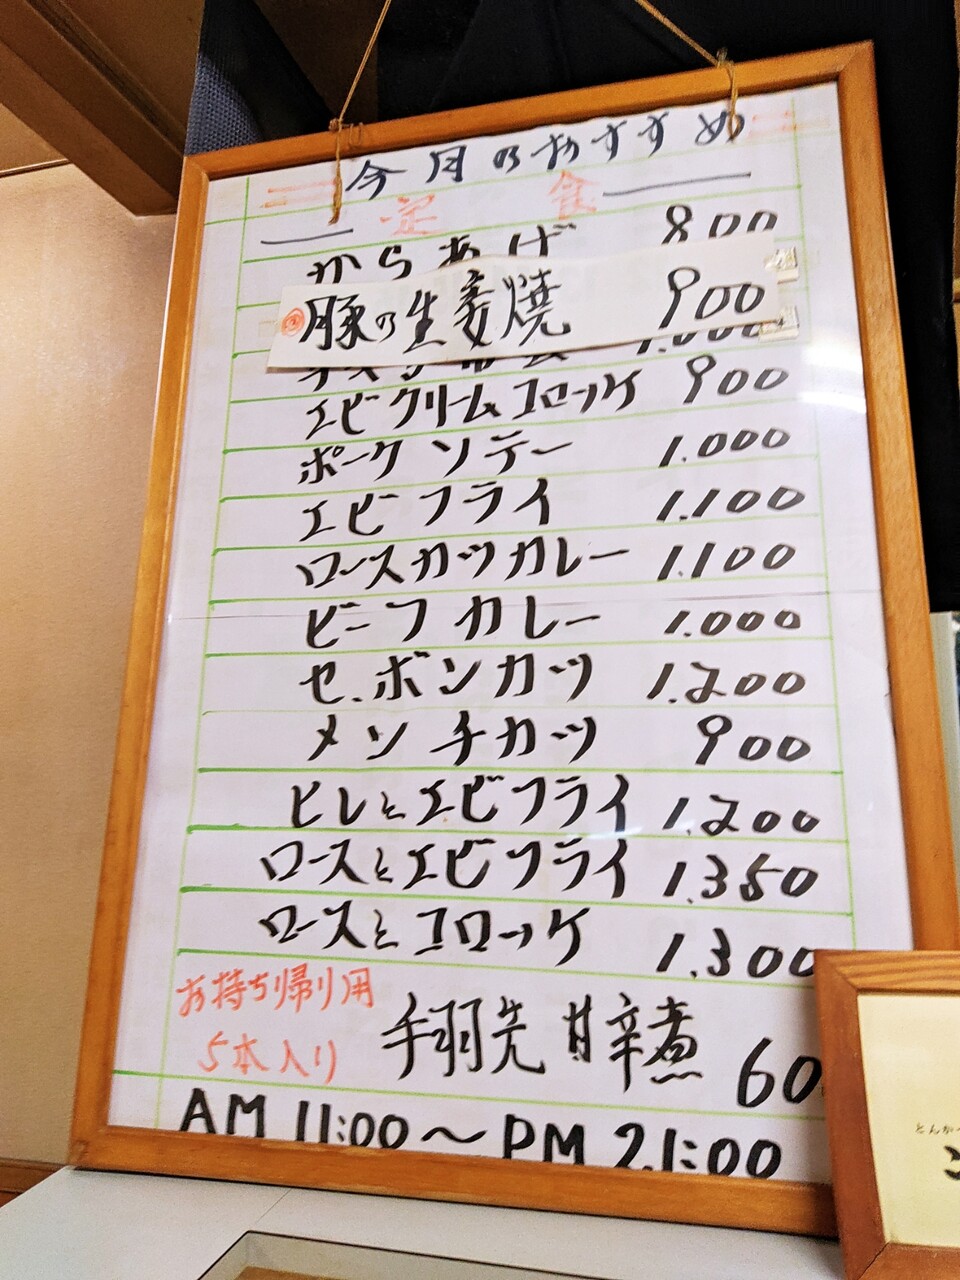 今月のおすすめ
定食
からあげ 800
豚の生姜焼 900
1.000
エビクリームコロッケ 900
ポークソテー 1.000
エビフライ 1.100
ロースカツカレー 1.100
ビーフカレー 1.000
セ.ボンカツ 1.200
メンチカツ 900
ヒレとエビフライ 1.200
ロースとエビフライ 1.350
ロースとコロッケ 1.300
お持ち帰り用
5本入り
手羽先甘辛煮 60
AM 11:00〜PM 21:00
とんか